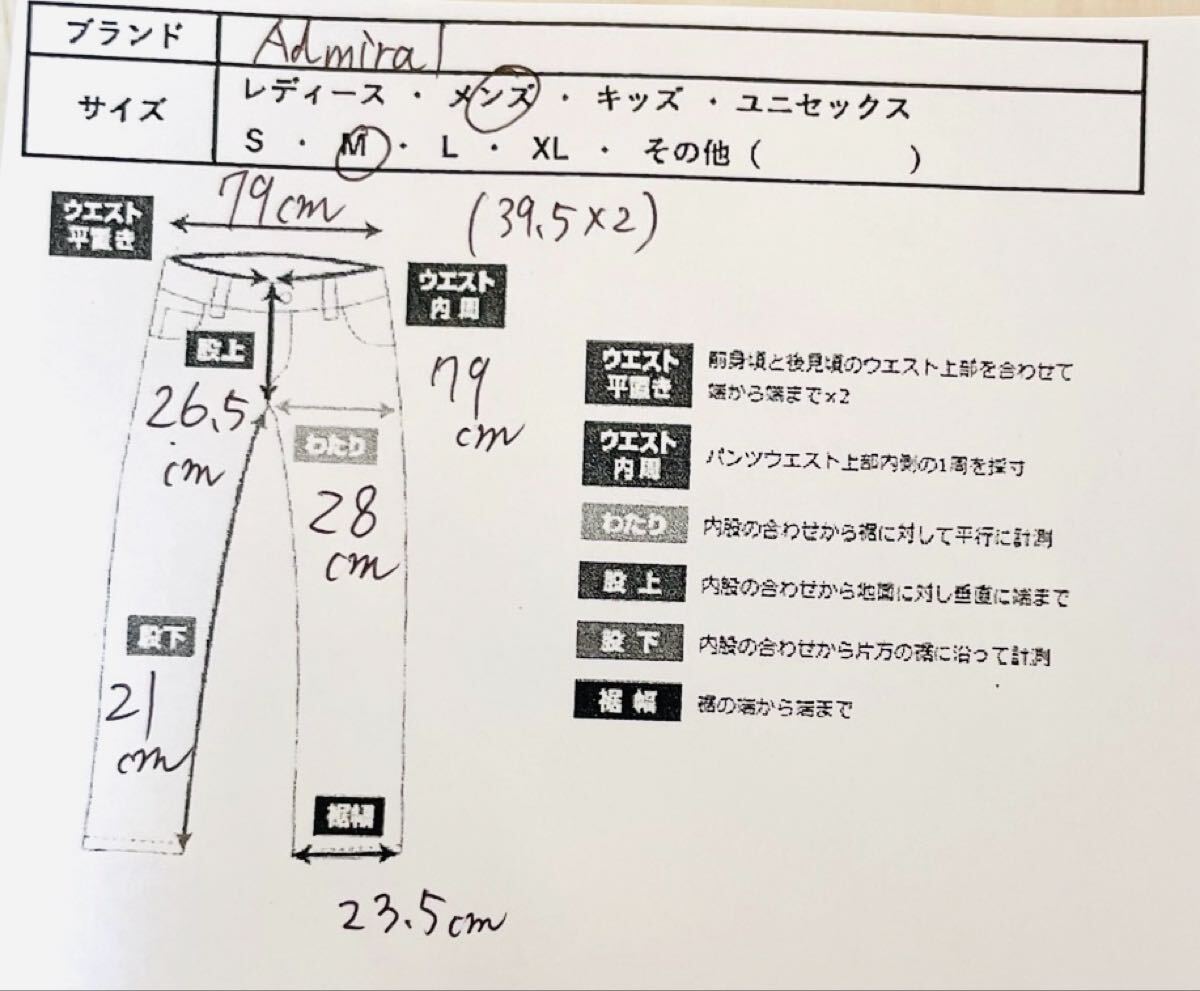 ブランド Admiral
サイズ レディース ・ メンズ ・ キッズ ・ ユニセックス
S ・ M ・ L ・ XL ・ その他 ( )
79cm
(39.5×2)
ウエスト
平置き
ウエスト
内周
79
cm
股上
26.5
cm
わたり
28
cm
股下
21
cm
裾幅
23.5cm
ウエスト
平置き
前身頃と後見頃のウエスト上部を合わせて
端から端まで×2
ウエスト
内周
パンツウエスト上部内側の1周を採寸
わたり 内股の合わせから裾に対して平行に計測
股上 内股の合わせから地面に対し垂直に端まで
股下 内股の合わせから片方の裾に沿って計測
裾幅 裾の端から端まで